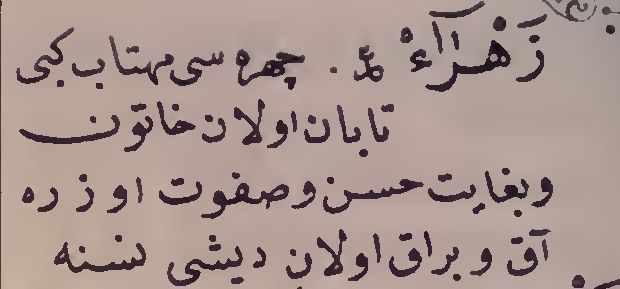 زَهْرَآءْ . چهره سى مهتاب كبى
تابان اولان خاتون
وبغايت حسن وصفوت اوزره
آق وبراق اولان ديشى نسنه